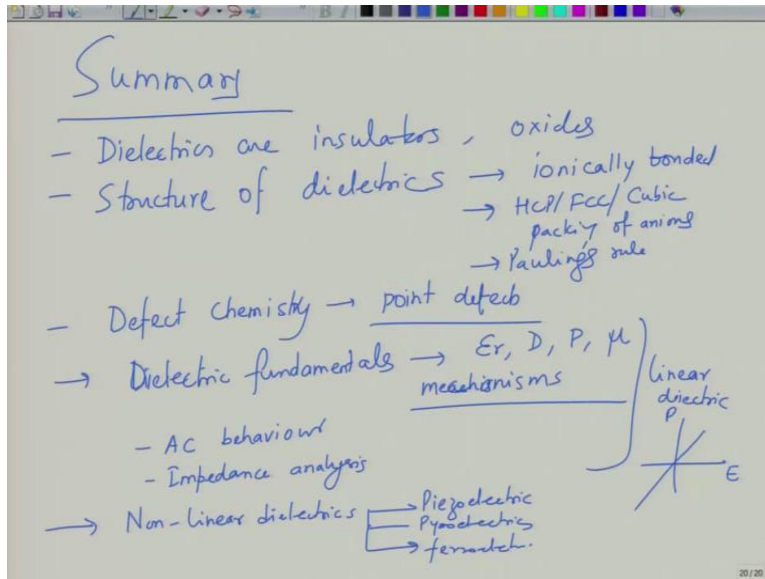 Summary
- Dielectrics are insulators, oxides
- Structure of dielectrics → ionically bonded
→ HCP/FCC/Cubic
packing of anions
→ Pauling's rule
- Defect Chemistry → point defects
→ Dielectric fundamentals → εr, D, P, μ
mechanisms
linear
dielectric
P
E
- AC behaviour
- Impedance analysis
→ Non-linear dielectrics → Piezoelectric
Pyroelectrics
→ ferroelect.
20/20